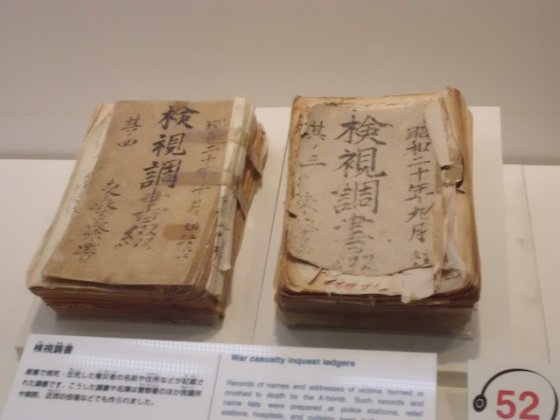 検視調書綴
其四
昭和二十年十月
検視調書綴
其ノ三
昭和二十年九月
検視調書
署で焼死・圧死した被災者の名前や住所などが記載さ
れた調書です。こうした調書や名簿は警察署のほか救護所
や病院、近郊の役場などでも作られました。
War casualty inquest ledgers
Records of names and addresses of victims burned or
crushed to death by the A-bomb. Such records and
name lists were prepared at police stations, relief
stations, hospitals, and
52